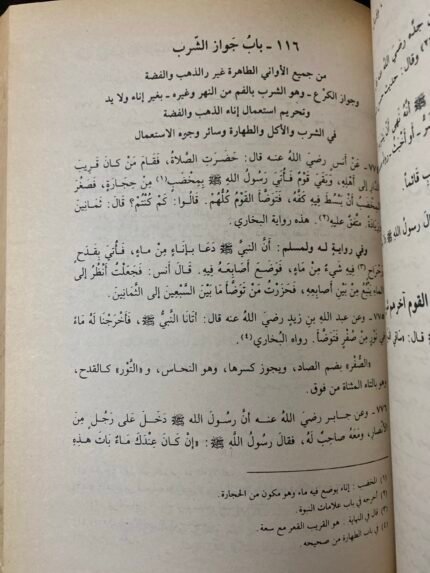 ١١٦ - بابُ جَواز الشّرب
من جميع الأواني الطاهرة غير الذهب والفضة
وجواز الكرْع - وهو الشرب بالفم من النهر وغيره - بغير إناء ولا يد
وتحريم استعمال إناء الذهب والفضة
في الشرب والأكل والطهارة وسائر وجوه الاستعمال
عَنْ أنس رضيَ اللهُ عنه قال: حَضَرَتِ الصَّلاةُ، فَقَامَ مَنْ كَانَ قَرِيبَ
الدَّارِ إِلى أهْلِهِ، وَبَقِيَ قَوْمٌ فَأُتِيَ رَسُولُ اللهِ ﷺ بِمِخْضَبٍ(١) مِن حِجَارَةٍ، فَصَغُرَ
المِخْضَبُ أَنْ يَبْسُطَ فِيهِ كَفَّهُ، فَتَوَضَّأَ القَوْمُ كُلُّهُمْ. قَالُوا: كَمْ كُنْتُمْ؟ قَالَ: ثَمَانِينَ
وَزِيَادَةً. متفقٌ عليه(٢). هذه رواية البخاري.
وفي روايةٍ لـه ولمسلم: أَنَّ النبيَّ ﷺ دَعَا بِإِناءٍ مِنْ مَاءٍ، فأُتِيَ بِقَدَحٍ
رَحْرَاحٍ(٣) فِيهِ شَيْءٌ مِنْ مَاءٍ، فَوَضَعَ أَصَابِعَهُ فِيهِ. قَالَ أنس: فَجَعَلْتُ أَنْظُرُ إِلى
الماءِ يَنْبُعُ مِنْ بَيْنِ أَصَابِعِهِ، فَحَزَرْتُ مَنْ تَوَضَّأَ مَا بَيْنَ السَّبْعِينَ إِلى الثَّمَانِينَ.
٧٧٥ - وعن عبد الله بنِ زيدٍ رضيَ اللهُ عنه قال: أَتَانَا النَّبِيُّ ﷺ، فَأَخْرَجْنَا لَهُ مَاءً
في تَوْرٍ مِنْ صُفْرٍ فَتَوَضَّأَ. رواه البخاري(٤).
«الصُّفْر» بضم الصاد، ويجوز كسرها، وهو النحاس، و«التَّوْر» كالقدح،
وهو بالتاء المثناة من فوق.
٧٧٦ - وعن جـابـر رضيَ اللهُ عنـه أنَّ رَسُولَ الله ﷺ دَخَلَ عَلى رَجُلٍ مِنَ
الأَنْصارِ، وَمَعَهُ صاحِبٌ لَهُ، فقالَ رَسُولُ اللَّهِ ﷺ: «إنْ كَانَ عِنْدَكَ مَاءٌ بَاتَ هَذِهِ
(١) المخضب: إناء يوضع فيه ماء وهو مكون من الحجارة.
(٢) أخرجه في باب علامات النبوة.
(٣) قال في النهاية: هو القريب القعر مع سعة.
(٤) في باب الطهارة من صحيحه